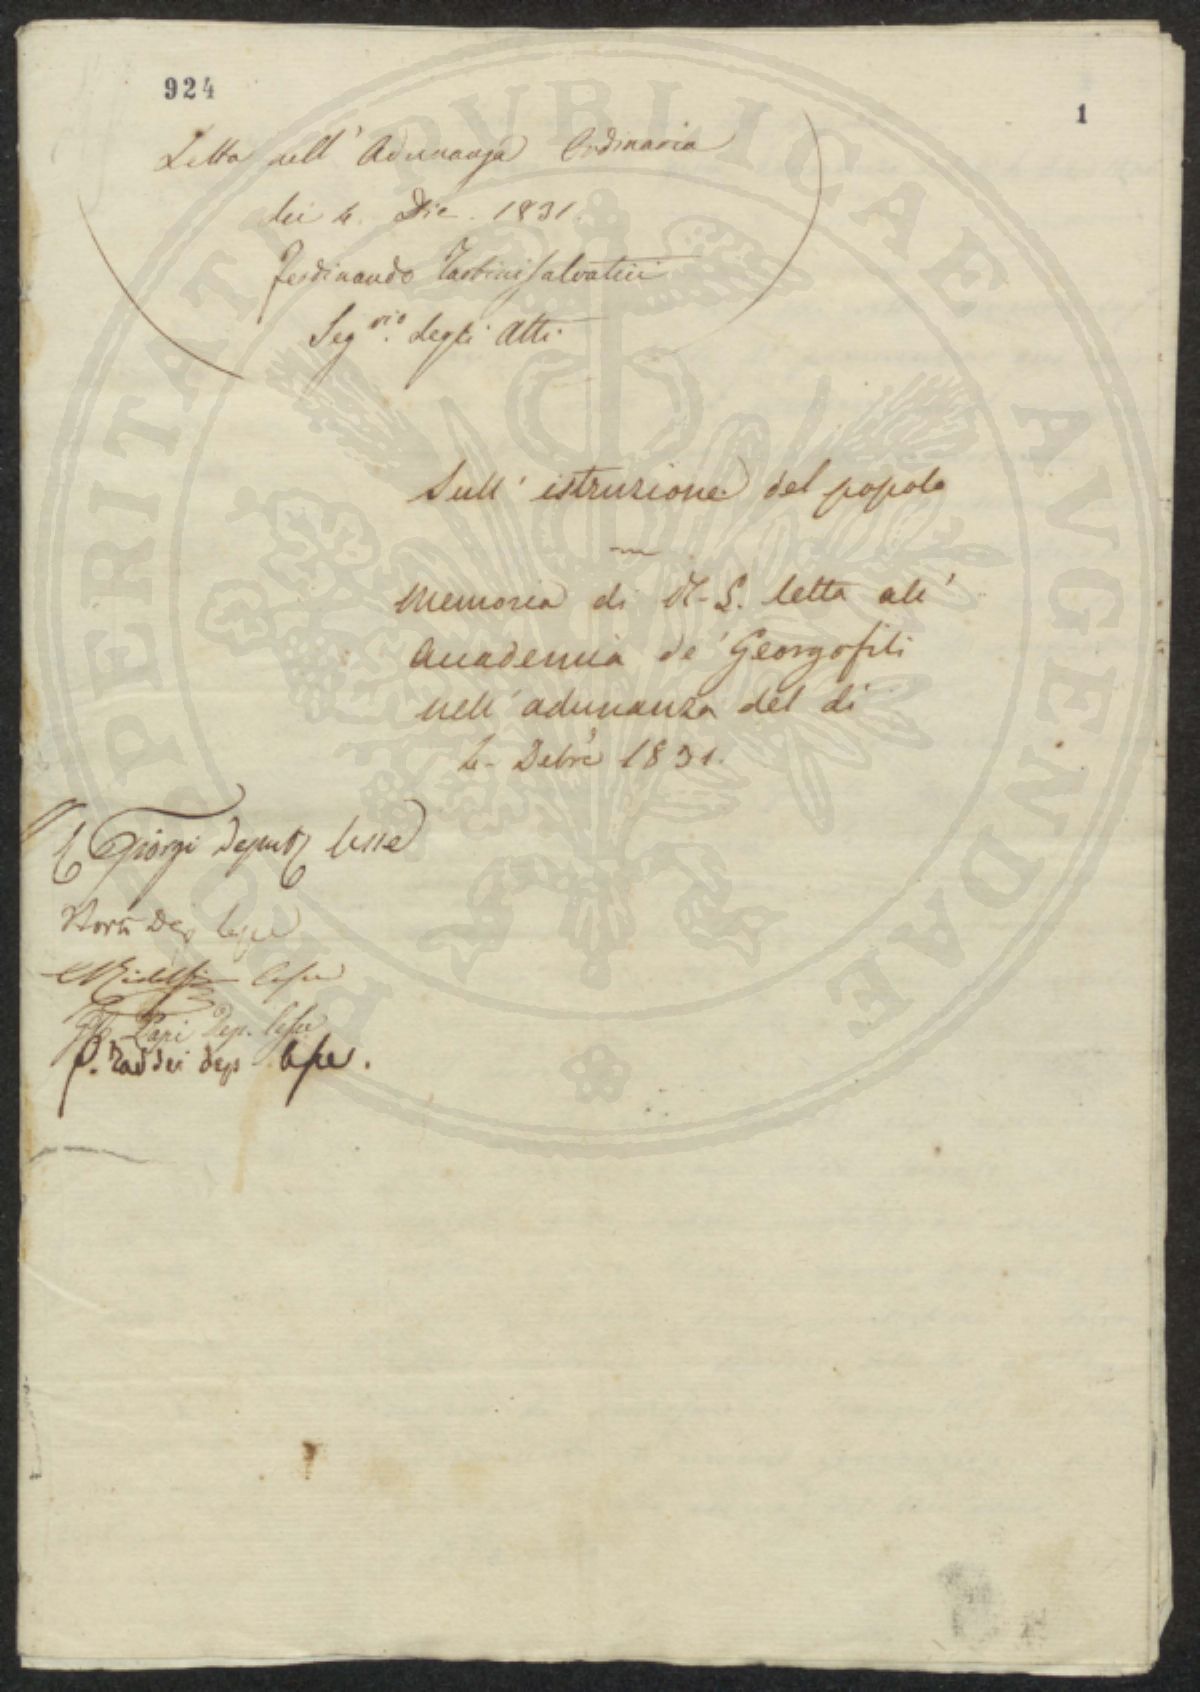 924
1
Letta nell' Adunanza Ordinaria
dei 4. Dic. 1831.
Ferdinando Tartini Salvatici
Seg.rio degli Atti
Sull' istruzione del popolo
Memoria di M. L. letta all'
Accademia de' Georgofili
nell' adunanza del di
4. Debre 1831.
Giorgi Deput lesse
Dep lesse
CRidolfi lesse
Papi Dep. lesse
G. Taddei dep lesse.
PROSPERITATI PVBLICAE AVGENDAE